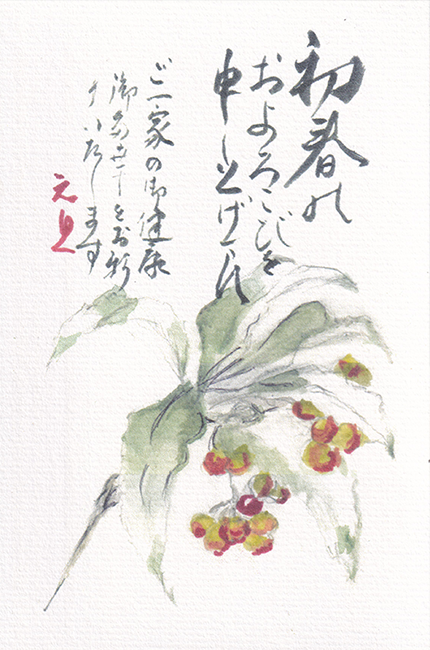 初春の
およろこびを
申し上げます
ご一家の御健康
御多幸をお祈り
申いたします
元旦